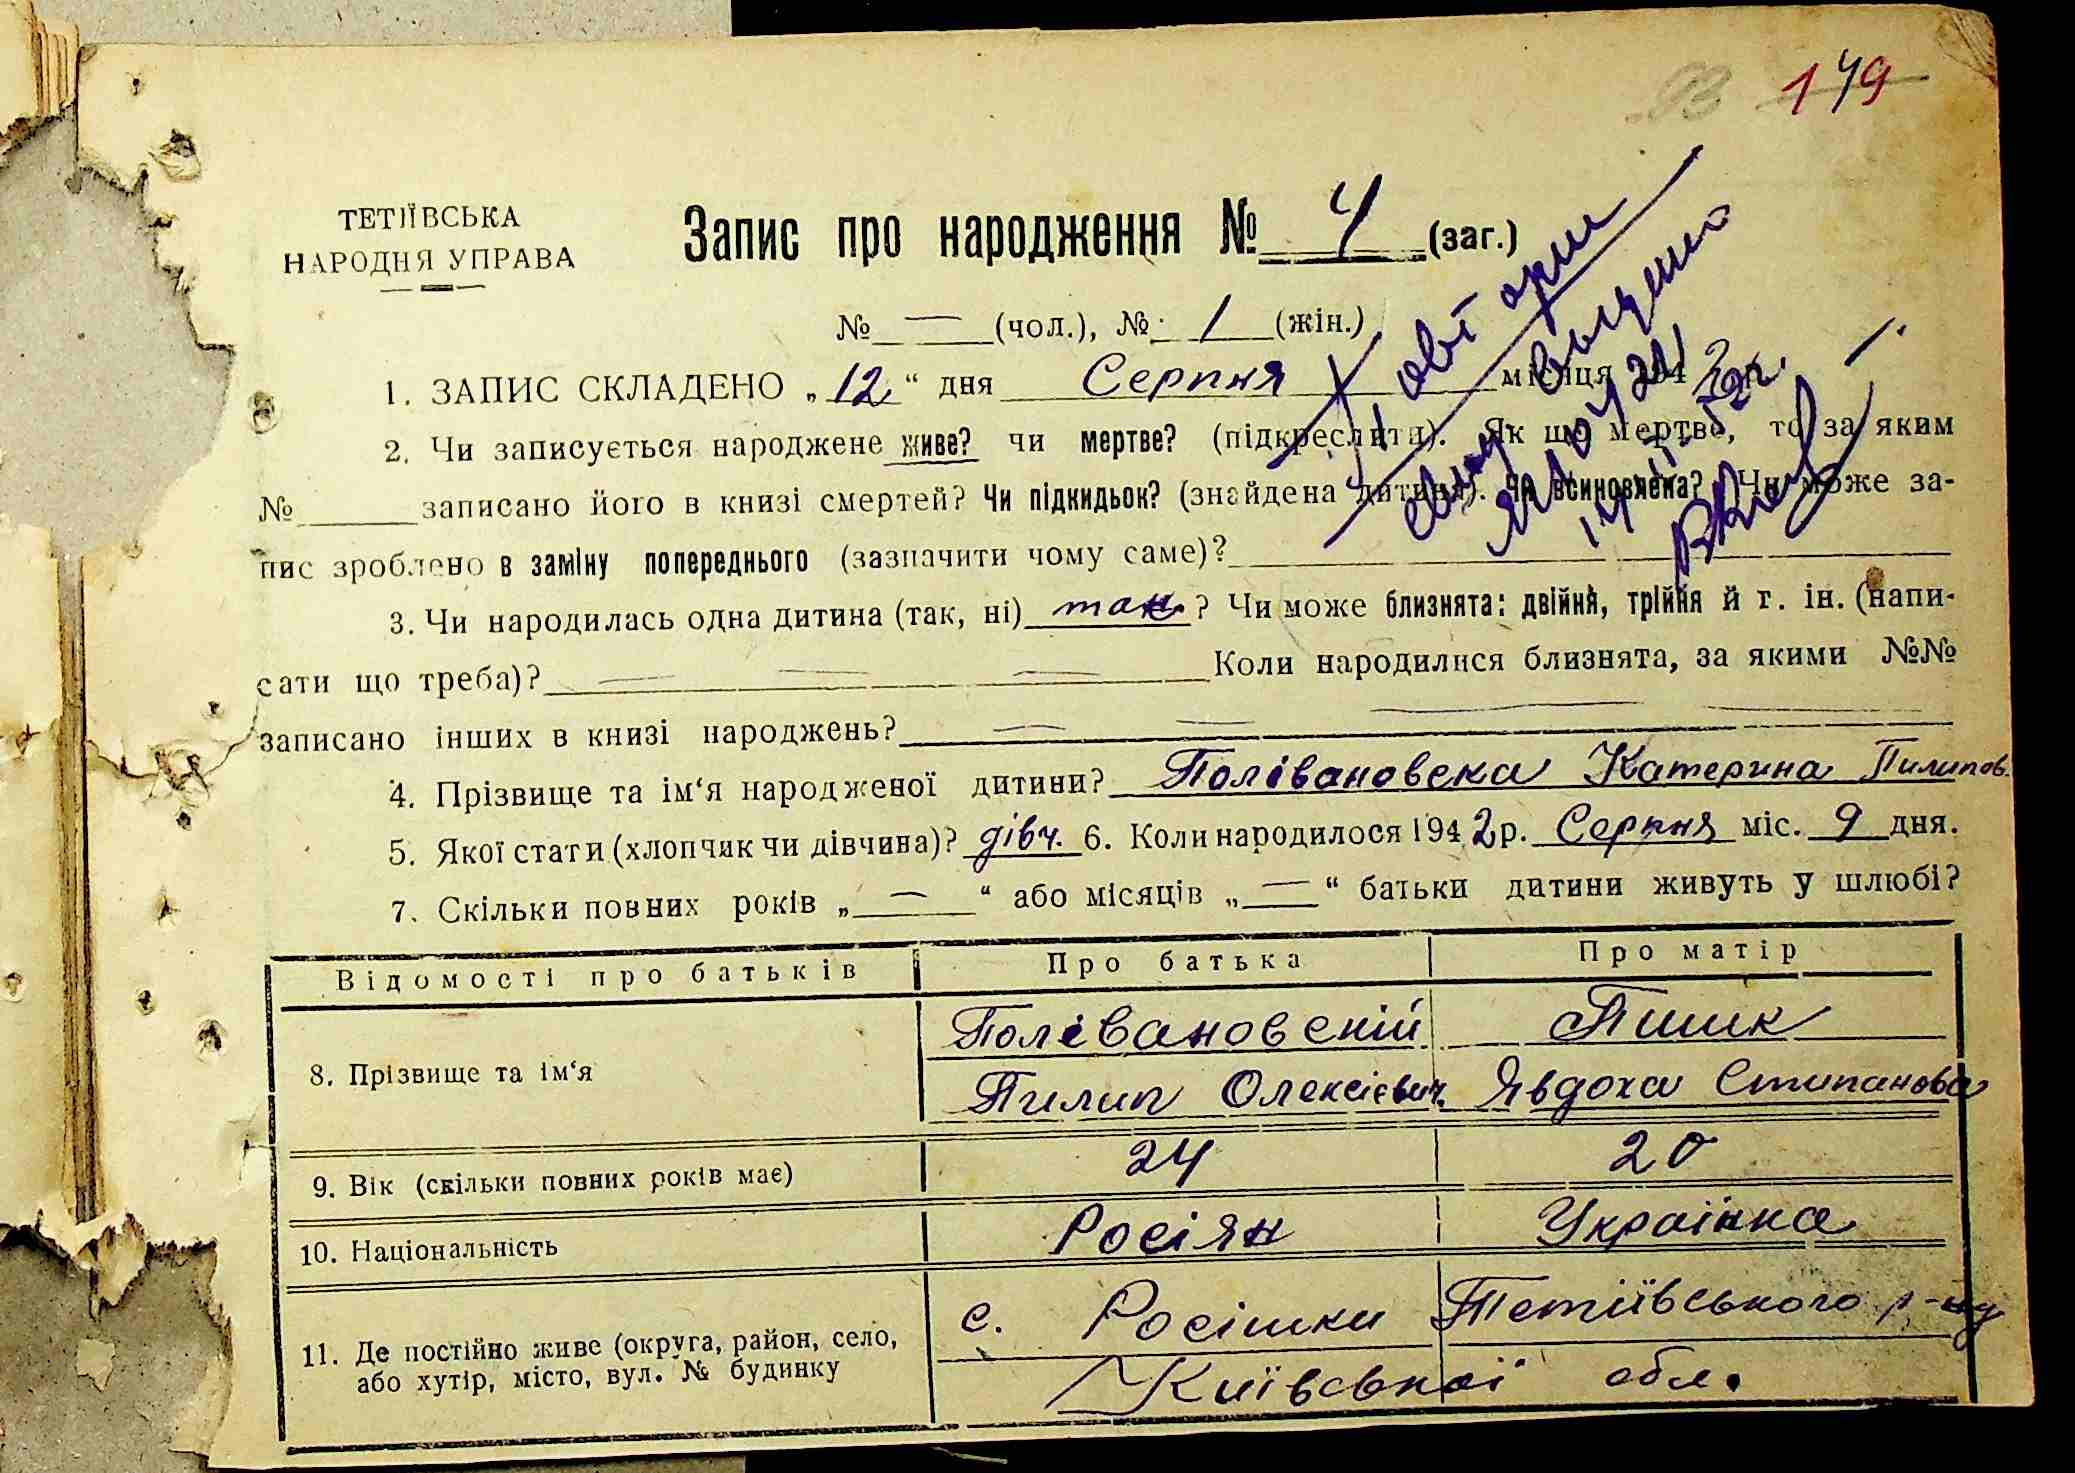 149
ТЕТІЇВСЬКА
НАРОДНЯ УПРАВА
Запис про народження № 4 (заг.)
№ — (чол.), № 1 (жін.)
1. ЗАПИС СКЛАДЕНО „12“ дня Серпня місяця 1942 р.
2. Чи записується народжене живе? чи мертве? (підкреслити). Як що мертве, то за яким
№ записано його в книзі смертей? Чи підкидьок? (знайдена дитина). Чи всиновлена? Чи може за-
пис зроблено в заміну попереднього (зазначити чому саме)?
3. Чи народилась одна дитина (так, ні) так. ? Чи може близнята: двійня, трійня й т. ін. (напи-
сати що треба)? — — — Коли народилися близнята, за якими №№
записано інших в книзі народжень? — — — —
4. Прізвище та ім‘я народженої дитини? Полівановска Катерина Пилипов.
5. Якої стати (хлопчик чи дівчина)? дівч. 6. Коли народилося 1942 р. Серпня міс. 9 дня.
7. Скільки повних років „ — “ або місяців „ — “ батьки дитини живуть у шлюбі?
Відомості про батьків Про батька Про матір
8. Прізвище та ім‘я Полівановскій Пшик
Пилип Олексієвич. Явдоха Стипанова
9. Вік (скільки повних років має) 24 20
10. Національність Росіян Українка
11. Де постійно живе (округа, район, село, с. Росішки Тетіївського р-ну
або хутір, місто, вул. № будинку Київської обл.
Повторни
свид выдано